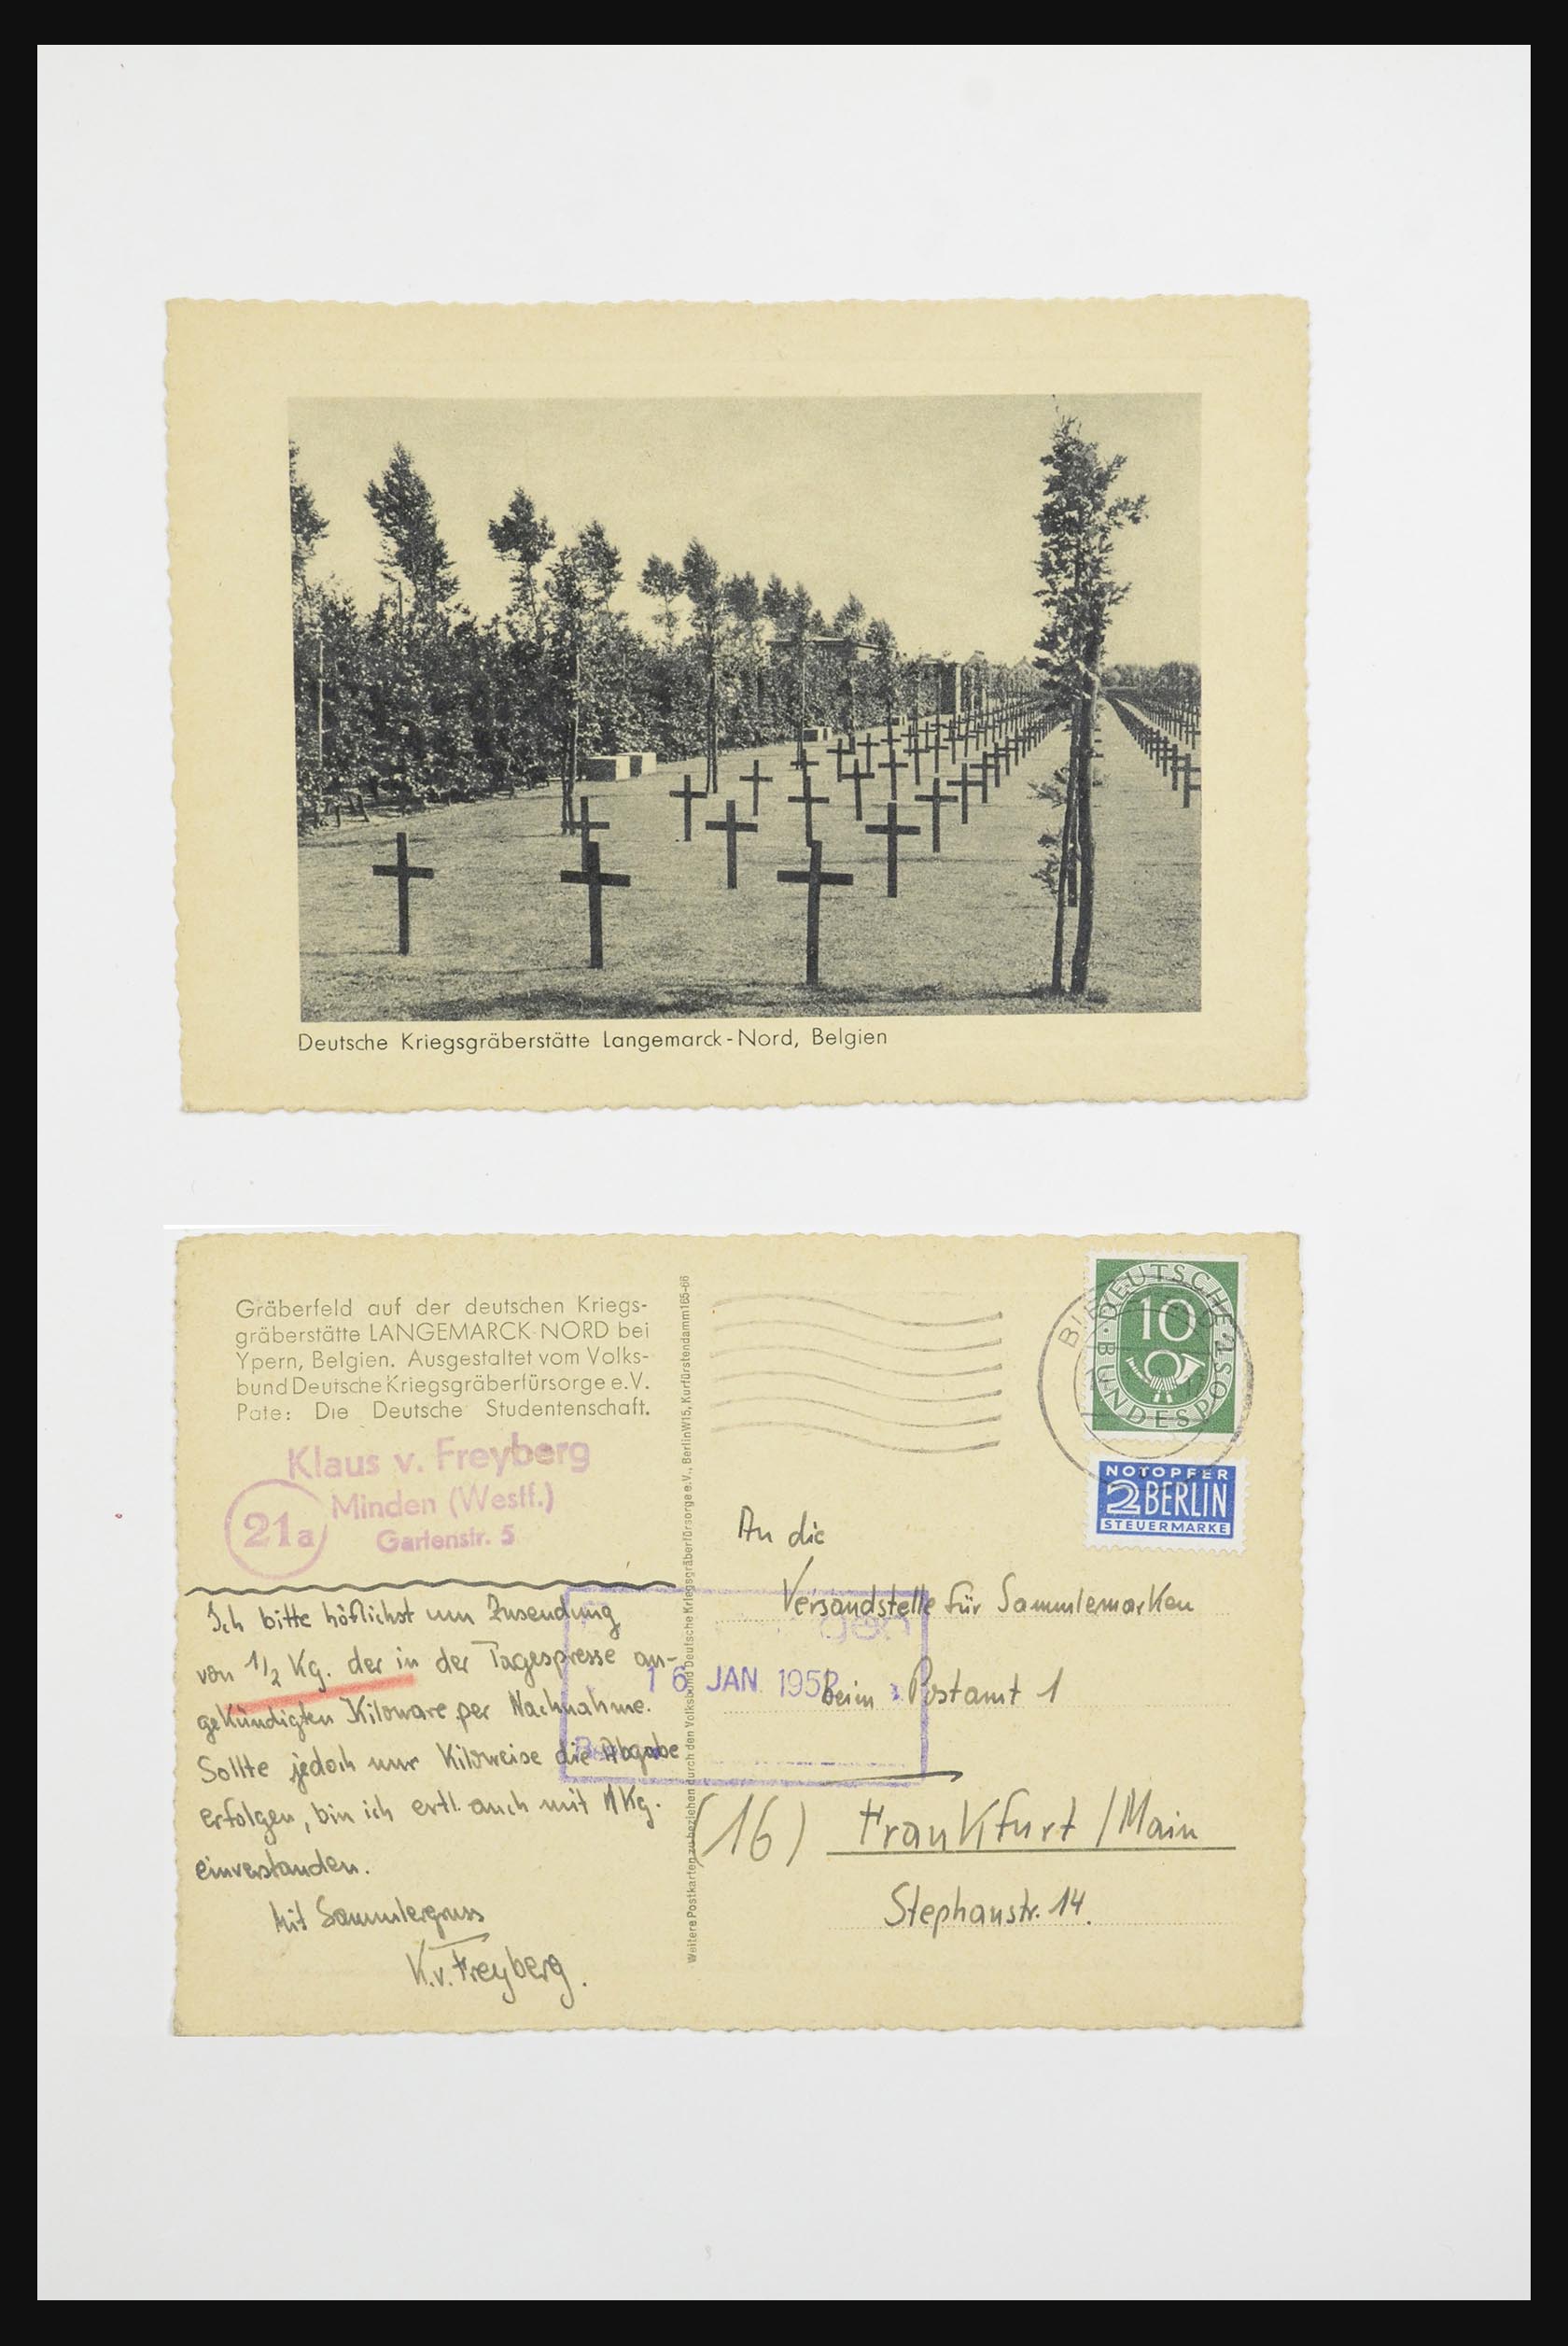 Deutsche Kriegsgräberstätte Langemarck-Nord, Belgien
Gräberfeld auf der deutschen Kriegs-
gräberstätte LANGEMARCK-NORD bei
Ypern, Belgien. Ausgestaltet vom Volks-
bund Deutsche Kriegsgräberfürsorge e.V.
Pate: Die Deutsche Studentenschaft.
Klaus v. Freyberg
21a
Minden (Westf.)
Gartenstr. 5
Ich bitte höflichst um Zusendung
von 1/2 Kg. der in der Tagespresse an-
gekündigten Kiloware per Nachnahme.
Sollte jedoch nur Kiloweise die Abgabe
erfolgen, bin ich evtl. auch mit 1 Kg.
einverstanden.
Mit Sammlergruss
K. v. Freyberg.
Weitere Postkarten zu beziehen durch den Volksbund Deutsche Kriegsgräberfürsorge e.V., Berlin W15, Kurfürstendamm 165-66
DEUTSCHE BUNDESPOST
10
NOTOPFER
2 BERLIN
STEUERMARKE
An die
Versandstelle für Sammlermarken
16 JAN. 195
beim Postamt 1
(16) Frankfurt/Main
Stephanstr. 14.